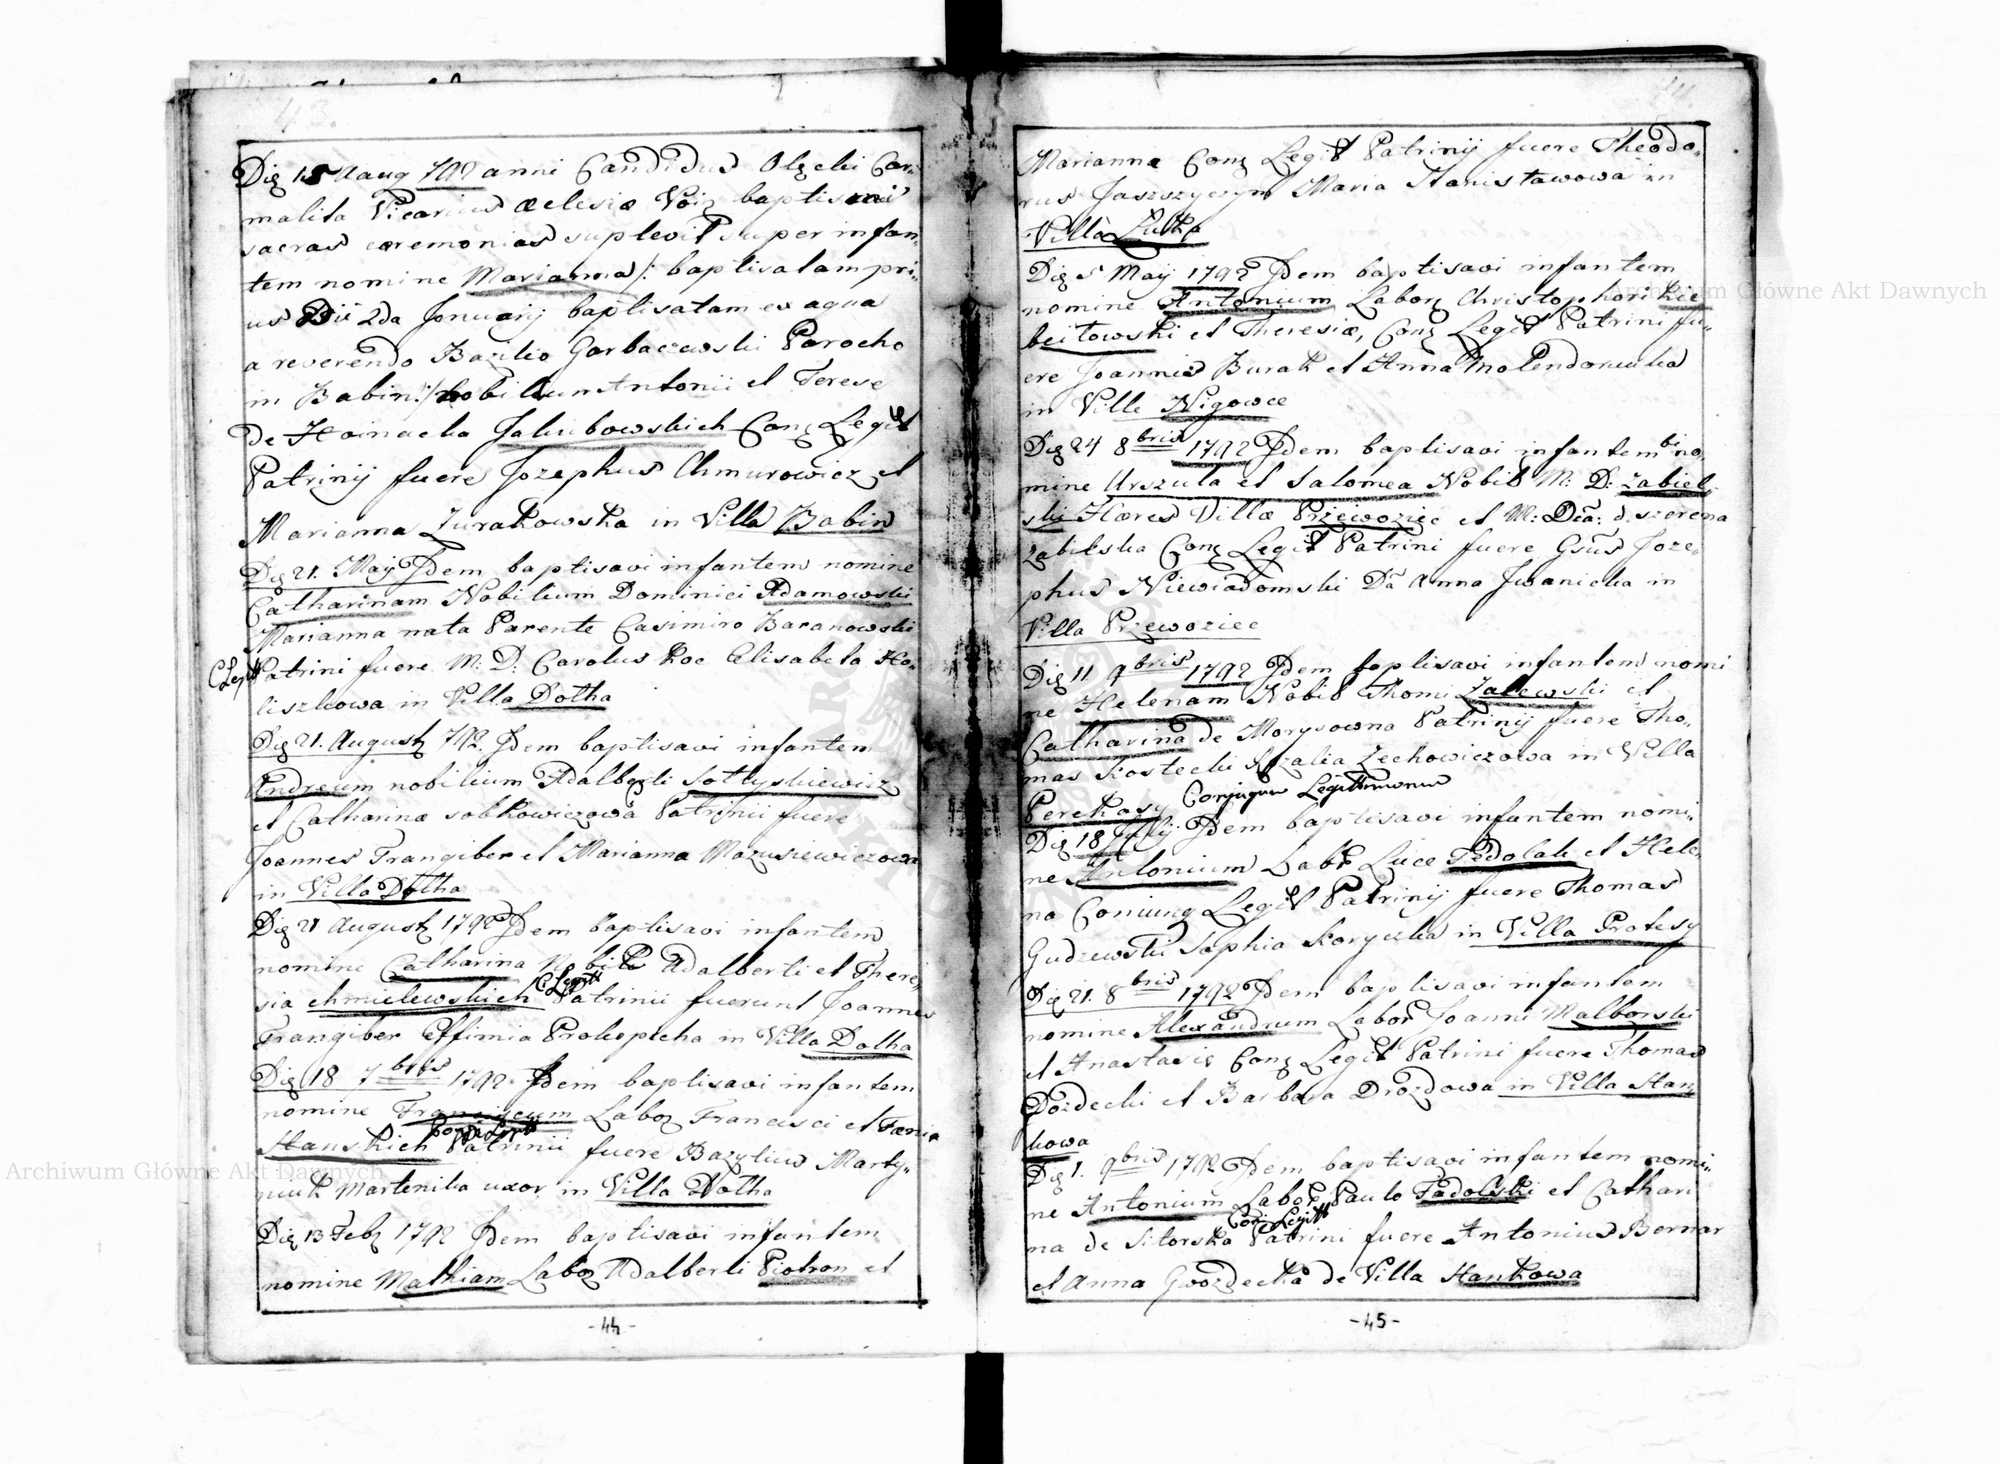 43.
Die 15 Aaug 792 anni Candidus Olzcki Car-
malita Vicarius æclesiæ Voin baptismi
sacras ceremonias suplevit super infan-
tem nomine Marianna /: baptisatam pri-
us Dii 2da Jonuarij baptisatam ex aqua
a reverendo Bazilio Gorbaczewski Parocho
in Babin :/ nobilium Antonii et Terese
de Hoinacka Jakubowskich Conj Legit
Patrinij fuere Jozephus Chmurowicz et
Marianna Zurakowska in Villa Babin
Die 21. Maij Jdem baptisavi infantem nomine
Catharinam Nobilium Dominici Adamowski
Marianna nata Parente Casimiro Baranowski
C Legit Patrini fuere M: D: Carolus Koc Elisabeta Ho-
liszkowa in Villa Dotha
Die 21. August 792. Jdem baptisavi infantem
Andreum nobilium Adalberti Sottyskiewisz
et Catharinæ sobkowiczowa Patrinii fuere
Joannes Frangiber et Marianna Mazusiewiczowa
in Villa Dotha
Die 21 August 1792 Jdem baptisavi infantem
nomine Catharina Nobili Adalberti et There-
C Legitt
sia chmielewskich Patrinii fuerunt Joannes
Frangiber Effimia Prokopicha in Villa Dotha
Die 18 7bris 1792. Jdem baptisavi infantem
nomine Franciscum Labor Francisci et Fœnia
Conj Legitt
Hanskich Patrinii fuere Bazylius Marty-
niuk Martenika uxor in Villa Dotha
Die 13 Feb 1792 Jdem baptisavi infantem
nomine Mathiam Labor Adalberti Piotron et
-44-
Marianna Conj Legit Patrinij fuere Theodo-
rus Jaszszyczyn Maria Stanisławowa in
Villa Lutka
Die 5 Maij 1792 Jdem baptisavi infantem
nomine Antonium Labor Christophori Kie-
beitowski et Theresiæ, Conj Legit Patrini fu-
ere Joannis Burak et Anna Molendoniuka
in Ville Nigowce
Die 24 8bris 1792 Jdem baptisavi infantem bi no-
mine Urszula et Salomea Nobil M: D: Zabiel-
ski Hæres Villæ Przewoziec et M: Dca: d. szerena
Zabielska Conj Legit Patrini fuere Gsus Joze-
phus Niewiadomski Da Anna Jwanicka in
Villa Przewoziec
Die 11 9bris 1792 Jdem baptisavi infantem nomi
ne Helenam Nobil Thomi Zalewski et
Catharina de Morysowna Patrinij fuere Tho-
mas Kostecki Rozalia Zechowiczowa in Villa
Perekosy Conjugum Legittimorum
Die 18 Julij Jdem baptisavi infantem nomi-
ne Antonium Labor Luce Podolak et Hele-
na Coniung Legit Patrinij fuere Thomas
Gudzewski Sophia Koryczka in Villa Protesy
Die 21. 8bris 1792 Jdem baptisavi infantem
nomine Alexandrum Labor Joanni Malborski
et Anastasie Conj Legit Patrini fuere Thomas
Gozdecki et Barbara Drozdowa in Villa Stan-
kowa
Die 1. 9bris 1792 Jdem baptisavi infantem nomi-
ne Antonium Labor Paulo Podolski et Cathari
Conj Legitt
na de Sitorska Patrini fuere Antonius Bernar
et Anna Gwozdecka de Villa Stankowa
-45-
Archiwum Główne Akt Dawnych
Archiwum Główne Akt Dawnych